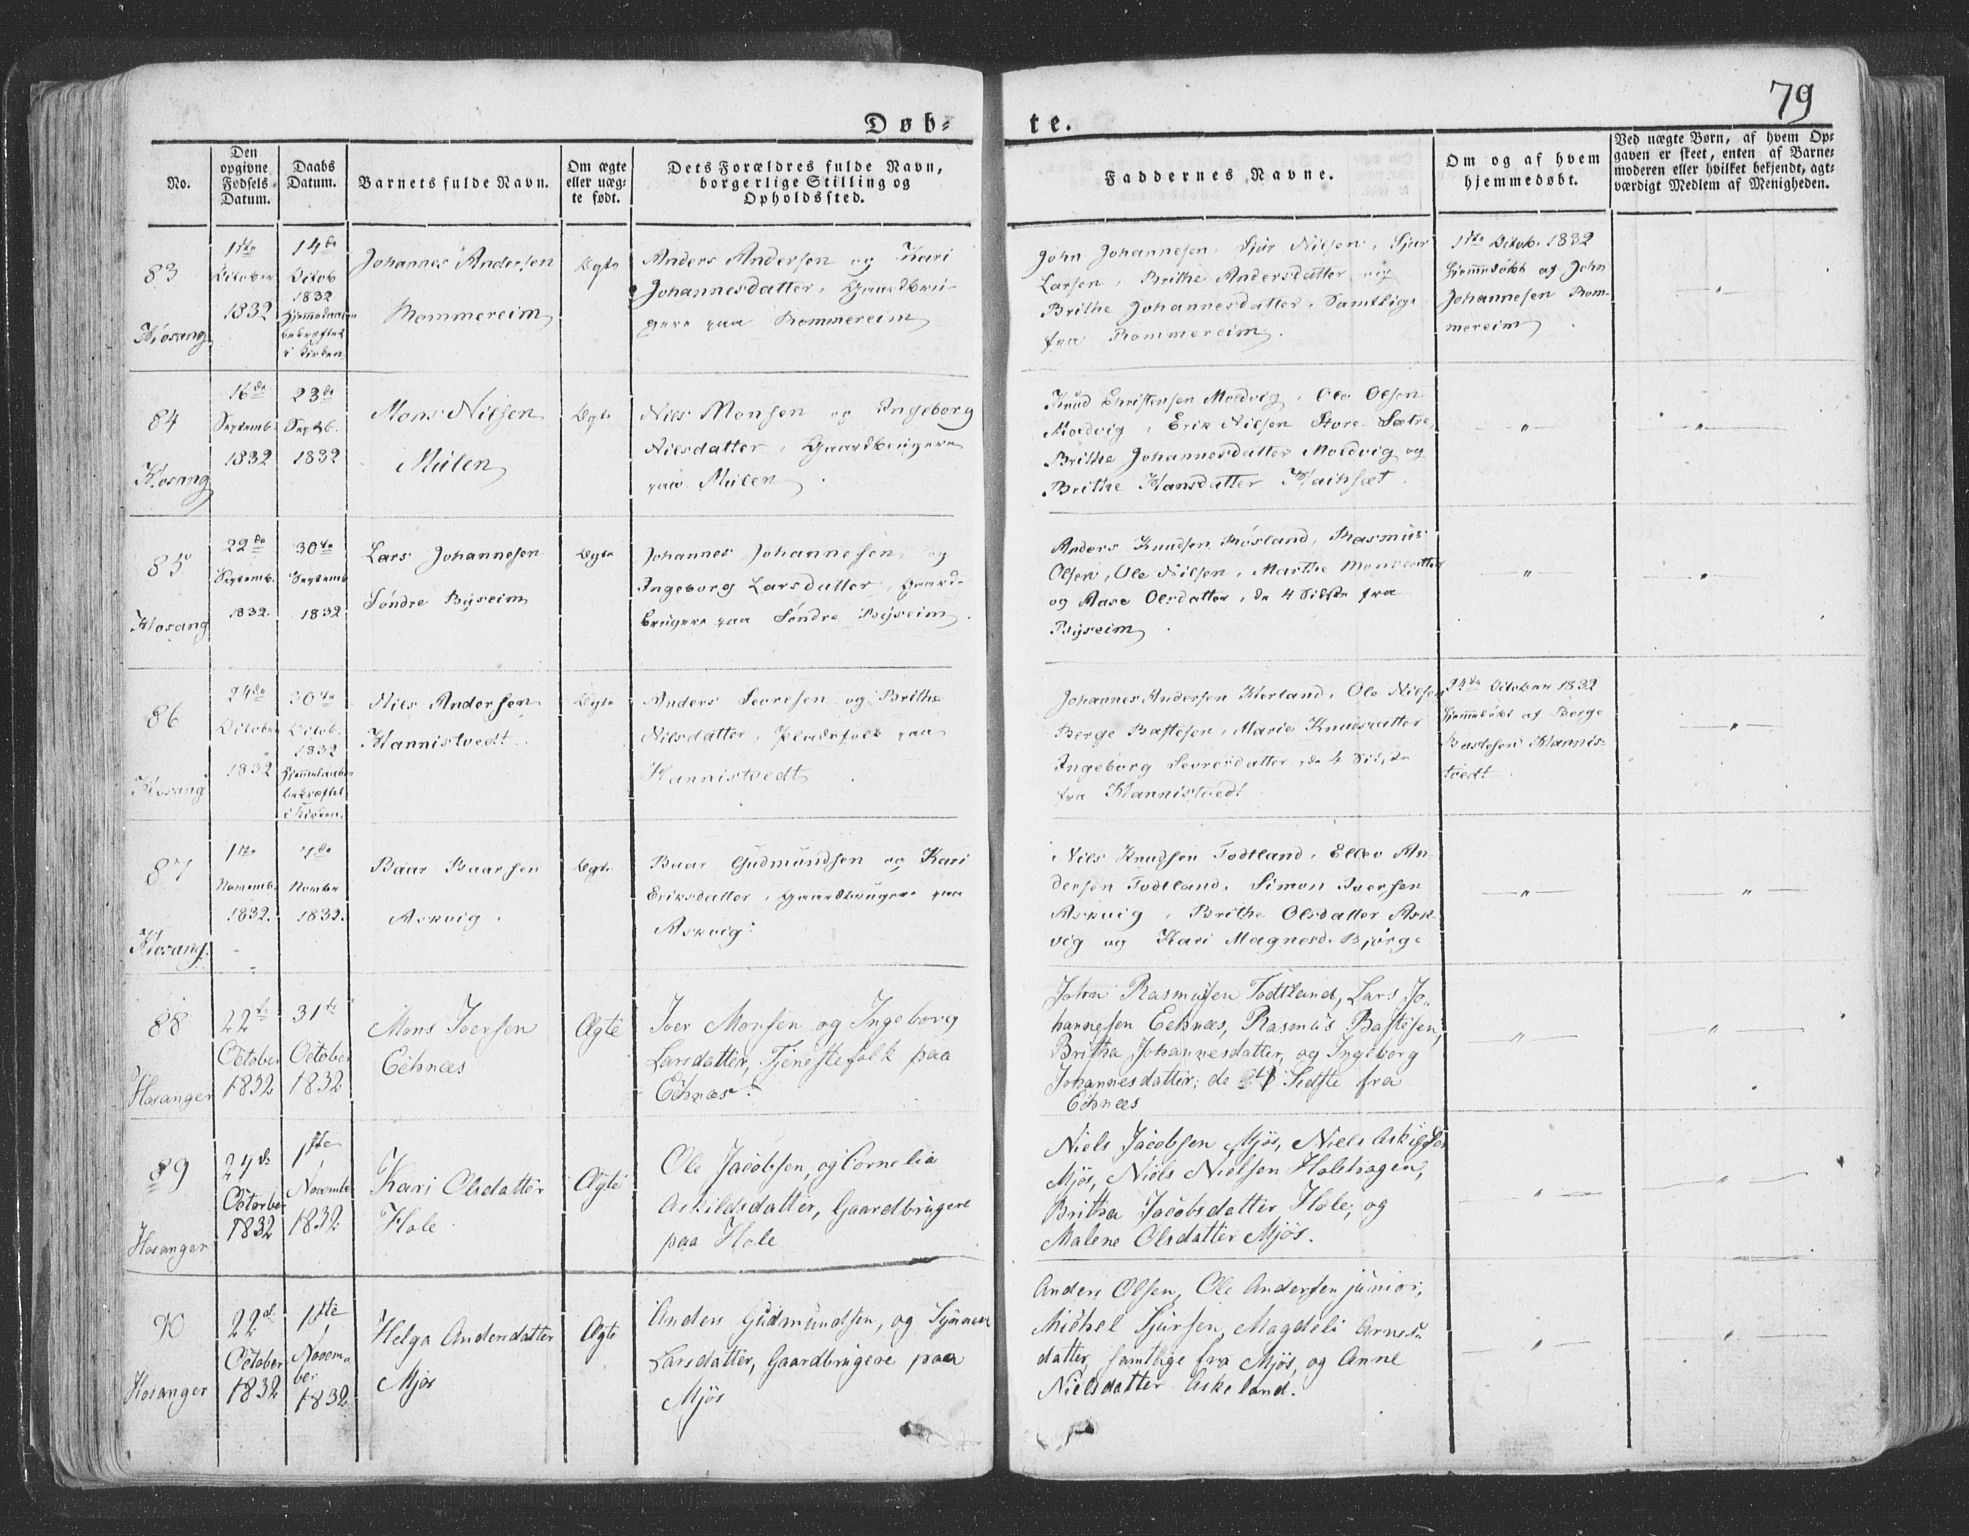 79
Døb-
te.
No.
Den
opgivne
Fødsels-
Datum.
Daabs
Datum.
Barnets fulde Navn.
Om ægte
eller uæg-
te født.
Dets Forældres fulde Navn,
borgerlige Stilling og
Opholdssted.
Faddernes Navne.
Om og af hvem
hjemmedøbt.
Ved uægte Børn, af hvem Op-
gaven er skeet, enten af Barne-
moderen eller hvilket bekjendt, agt-
værdigt Medlem af Menigheden.
83
Hosang
1ste
October
1832
14de
Octob
1832
Hjemmedaaben
bekræftet
i Kirken
Johannes Andersen
Rommereim
Ægte
Anders Andersen og Kari
Johannesdatter, Gaardbru-
gere paa Rommereim
John Johannesen, Sjur Nilsen, Sjur
Larsen, Brithe Andersdatter og
Brithe Johannesdatter, Samtlige
fra Rommereim.
1ste Octob. 1832
Hjemmedøbt af John
Johannesen Rom-
mereim
84
Hosang
16de
Septemb.
1832
23de
Septb.
1832
Mons Nilsen
Mülen
Ægte
Nils Monsen og Ingeborg
Nilsdatter, Gaardbrugere
paa Mülen.
Knud Christensen Moldvig, Ole Olsen
Moldvig, Erik Nilsen Store Sætre,
Brithe Johannesdatter Moldvig og
Brithe Hansdatter
85
Hosang
22de
Septemb.
1832.
30te
Septemb
1832
Lars Johannesen
Søndre Byseim
Ægte
Johannes Johannesen og
Ingeborg Larsdatter, Gaard-
brugere paa Søndre Byseim.
Anders Knudsen Røsland, Rasmus
Olsen, Ole Nilsen, Marthe Monsdatter
og Aase Olsdatter, de 4 Sidste fra
Byseim.
86
Hosang
24de
October
1832
30te
Octob.
1832
Hjemmedaaben
bekræftet
i Kirken.
Nils Andersen
Hannistvedt.
Ægte
Anders Sevresen og Brithe
Nilsdatter, Pladsfolk paa
Hannistvedt.
Johannes Andersen Herland, Ole Nilsen
Berge Bastesen, Marie Knudsdatter
Ingeborg Sevresdatter de 4 Sidste
fra Hannistvedt.
24de October 1832
Hjemmedøbt af Berge
Bastesen Hannis-
tvedt.
87
Hosang.
1te
Novemb.
1832.
4de
Novbr
1832.
Baar Baarsen
Askvig.
Ægte
Baar Gudmundsen og Kari
Eriksdatter, Gaardbrugere paa
Askvig.
Nils Knudsen Todtland, Ellev An-
dersen Todtland. Simon Iversen
Askvig, Brithe Olsdatter Ask-
vig og Kari Magnesd. Bjørge
88
Hosanger
22de
October
1832
31te
October
1832
Mons Iversen
Echnæs
Ægte
Iver Monsen og Ingeborg
Larsdatter, Tjenestefolk paa
Echnæs.
John Rasmusen Todtland, Lars Jo-
hannesen Echnæs, Rasmus Bastesen,
Britha Johannesdatter, og Ingeborg
Johannesdatter; de 4 Sidste fra
Echnæs
89
Hosanger
24de
October
1832
1ste
November
1832
Kari Olsdatter
Hole.
Ægte
Ole Jacobsen, og Cornelia
Askildsdatter, Gaardbrugere
paa Hole
Niels Jacobsen Mjøs, Niels Askildsen
Mjøs, Niels Nielsen Holetvagen,
Britha Jacobsdatter Hole, og
Malene Olsdatter Mjøs.
90
Hosanger
22de
October
1832
1ste
Novem-
ber
1832
Helga Andersdatter
Mjøs
Ægte
Anders Gudmundsen, og Synneve
Larsdatter, Gaardbrugere paa
Mjøs
Anders Olsen, Ole Andersen junior,
Michel Sjursen, Magdeli Arnes-
datter, samtlige fra Mjøs, og Anne
Nielsdatter Askeland.